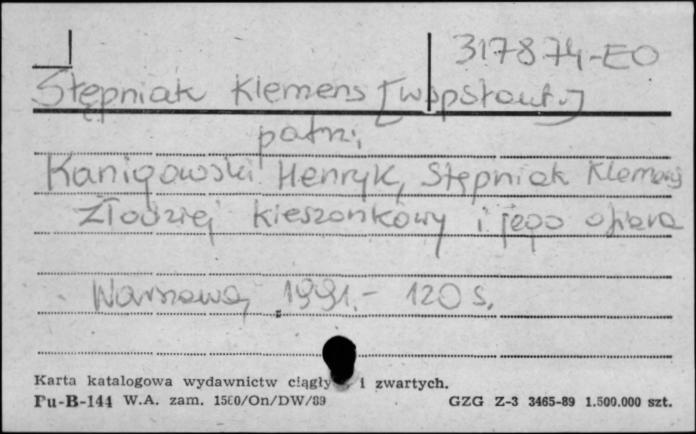 317874-EO
Stępniak Klemens [współaut.]
patrz:
Kanigowski Henryk, Stępniak Klemens
Złodziej kieszonkowy i jego ofiara
Warszawa, 1991.- 120 s.
Karta katalogowa wydawnictw ciągły i zwartych.
Pu-B-144 W.A. zam. 1500/On/DW/89 GZG Z-3 3465-89 1.500.000 szt.